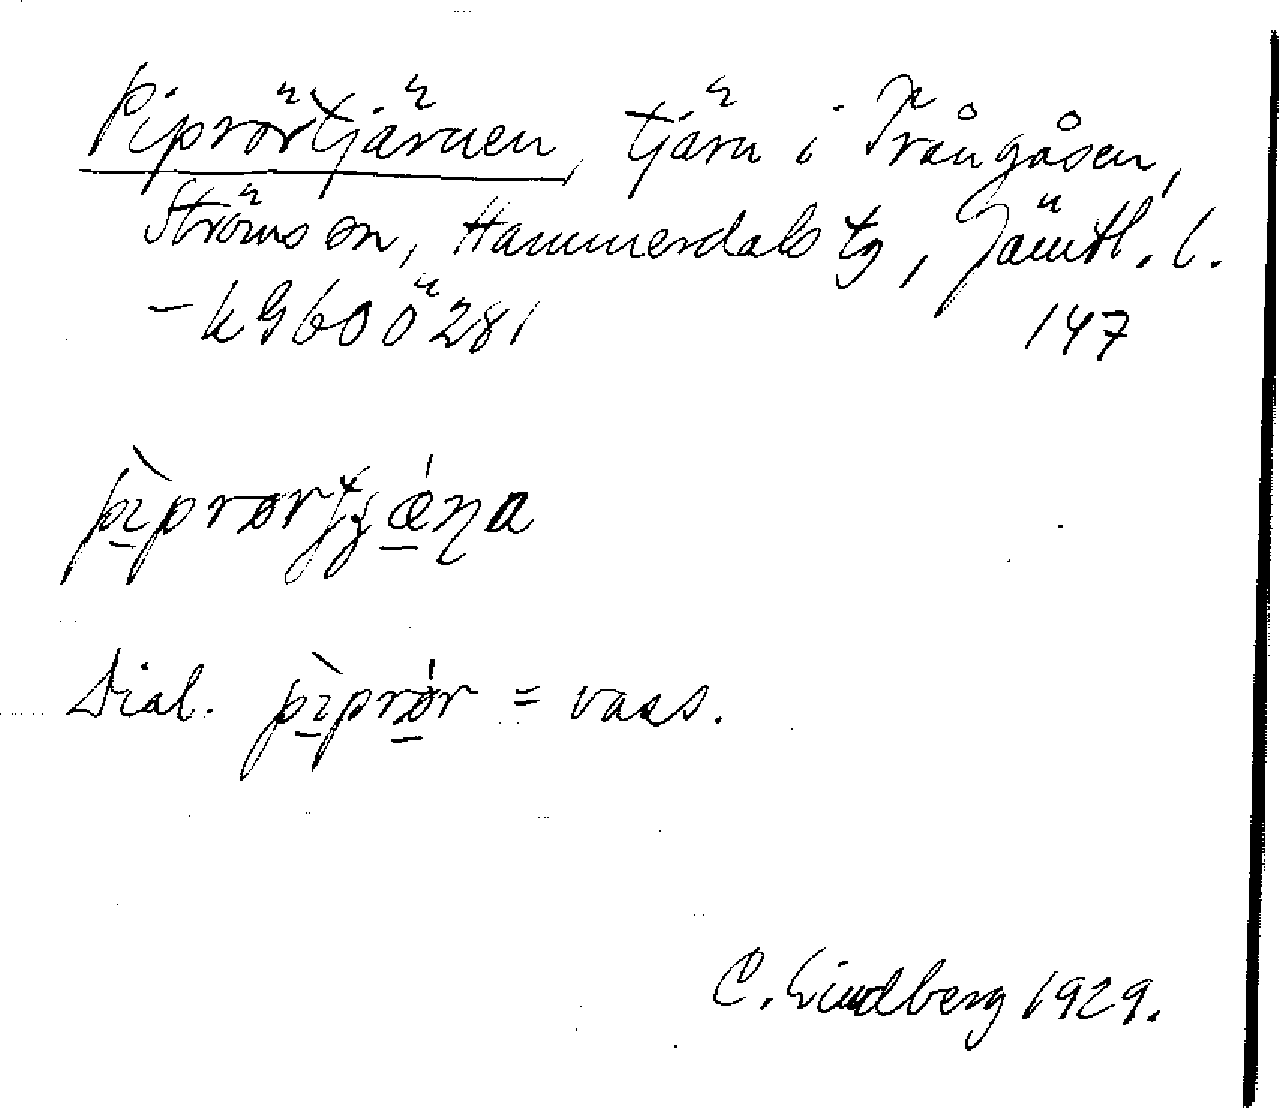 Piprörtjärnen, tjärn i Trångåsen,
Ströms sn, Hammerdals tg, Jämtl. l.
– k G 600 ö 281 147
pìprørtʒǽɳa
Dial. pìprǿr = vass.
C. Lindberg 1929.